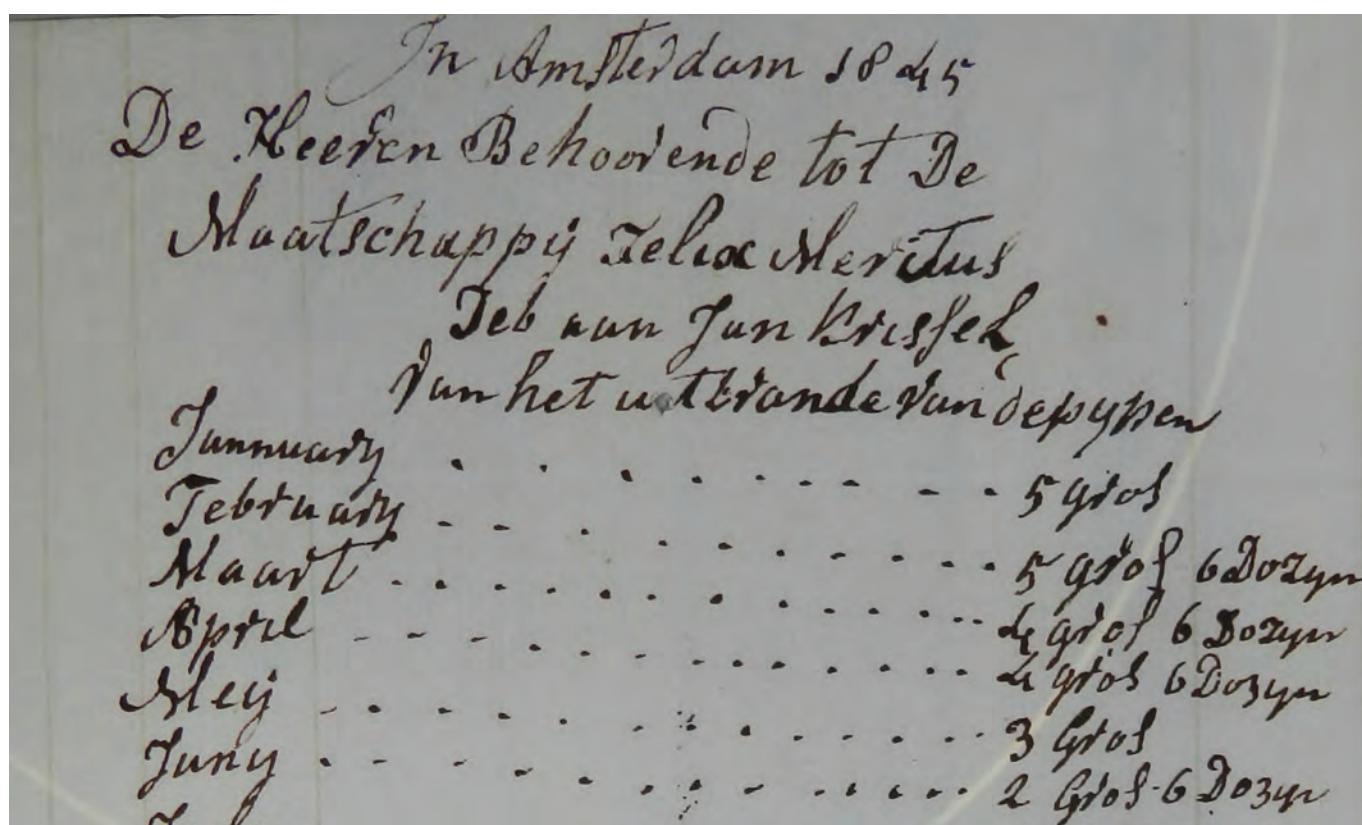 In Amsterdam 1845
De Heeren Behoorende tot De
Maatschappij Felix Meritus
Deb aan Jan Prissel
Van het uitbrande van de pypen
Jannuary . . . . . . . . . . 5 gros
February . . . . . . . . . . 5 gros 6 Dozyn
Maart . . . . . . . . . . 4 gros 6 Dozyn
April . . . . . . . . . . 4 gros 6 Dozyn
Meij . . . . . . . . . . 3 Gros
Juny . . . . . . . . . . 2 Gros 6 Dozyn